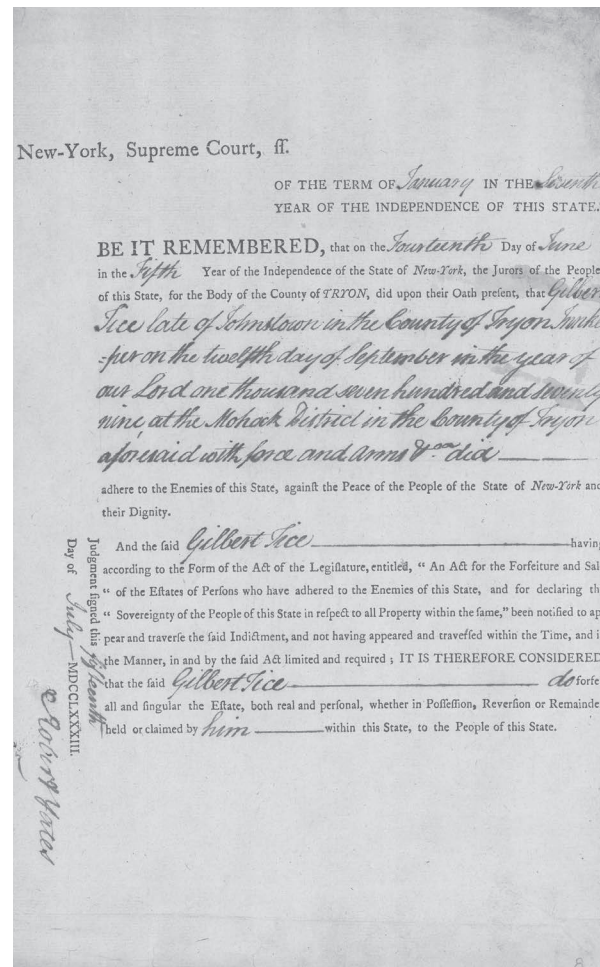 New-York, Supreme Court, ſſ.
OF THE TERM OF January IN THE Seventh
YEAR OF THE INDEPENDENCE OF THIS STATE.
BE IT REMEMBERED, that on the Fourteenth Day of June
in the Fifth Year of the Independence of the State of New-York, the Jurors of the People
of this State, for the Body of the County of TRYON, did upon their Oath preſent, that Gilbert
Tice late of Johnstown in the County of Tryon
-per on the twelfth day of September in the year of
our Lord one thousand seven hundred and seventy
nine, at the Mohock District in the County of Tryon
aforesaid with force and arms &ca did
adhere to the Enemies of this State, againſt the Peace of the People of the State of New-York and
their Dignity.
And the ſaid Gilbert Tice having
according to the Form of the Act of the Legiſlature, entitled, “ An Act for the Forfeiture and Sal
“ of the Eſtates of Perſons who have adhered to the Enemies of this State, and for declaring th
“ Sovereignty of the People of this State in reſpect to all Property within the ſame,” been notified to ap
pear and traverſe the ſaid Indictment, and not having appeared and traverſed within the Time, and i
the Manner, in and by the ſaid Act limited and required ; IT IS THEREFORE CONSIDERED
that the ſaid Gilbert Tice do forfe
all and ſingular the Eſtate, both real and perſonal, whether in Poſſeſſion, Reverſion or Remainde
held or claimed by him within this State, to the People of this State.
Judgment ſigned this fifteenth
Day of July MDCCLXXXIII.
Robert Yates
8